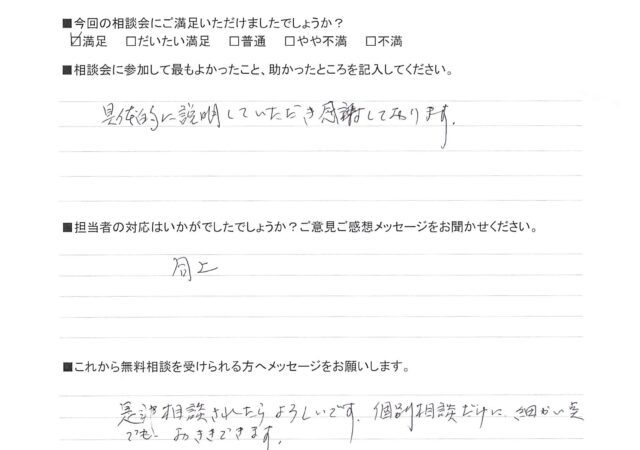 ■今回の相談会にご満足いただけましたでしょうか？
☑満足　□だいたい満足　□普通　□やや不満　□不満
■相談会に参加して最もよかったこと、助かったところを記入してください。
具体的に説明していただき感謝しております。
■担当者の対応はいかがでしたでしょうか？ご意見ご感想メッセージをお聞かせください。
同上
■これから無料相談を受けられる方へメッセージをお願いします。
相談されたらよろしいです。個別相談だけに、細かい点
でも おききできます。